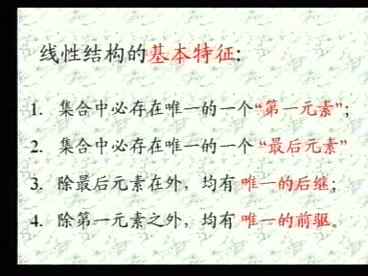 线性结构的基本特征:
1. 集合中必存在唯一的一个“第一元素”;
2. 集合中必存在唯一的一个 “最后元素”
3. 除最后元素在外，均有 唯一的后继;
4. 除第一元素之外，均有 唯一的前驱。